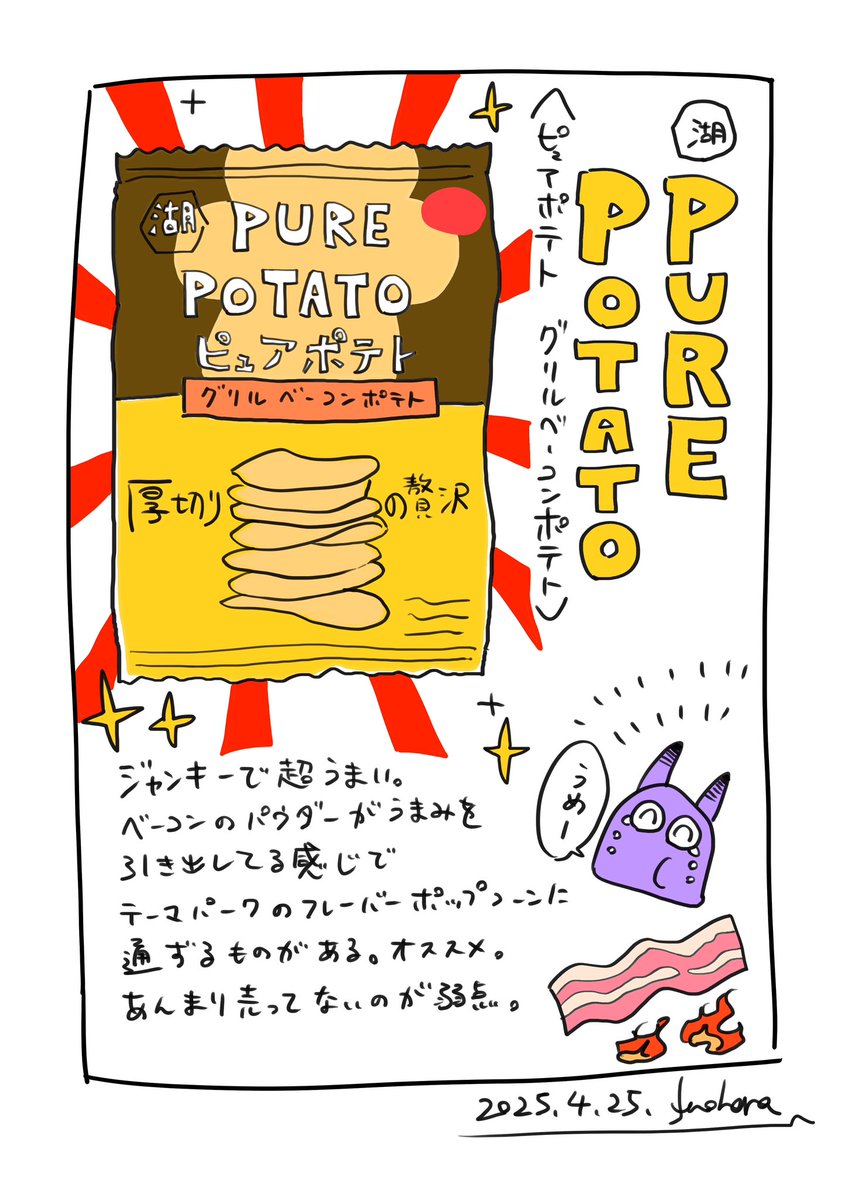 湖
PURE
POTATO
〈ピュアポテト グリルベーコンポテト〉
湖
PURE
POTATO
ピュアポテト
グリルベーコンポテト
厚切りの贅沢
うめー
ジャンキーで超うまい。
ベーコンのパウダーがうまみを
引き出してる感じで
テーマパークのフレーバーポップコーンに
通ずるものがある。オススメ。
あんまり売ってないのが弱点。
2025.4.25.